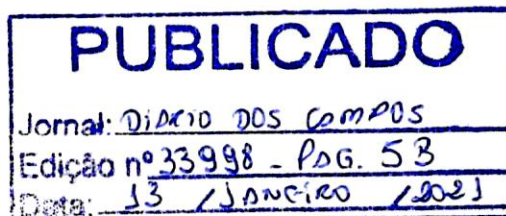 PUBLICADO
Jornal: DiARIO DOS CAMPOS
Edição nº 33998 - PAG. 5B
Data: 13 / JANEiRO / 2021